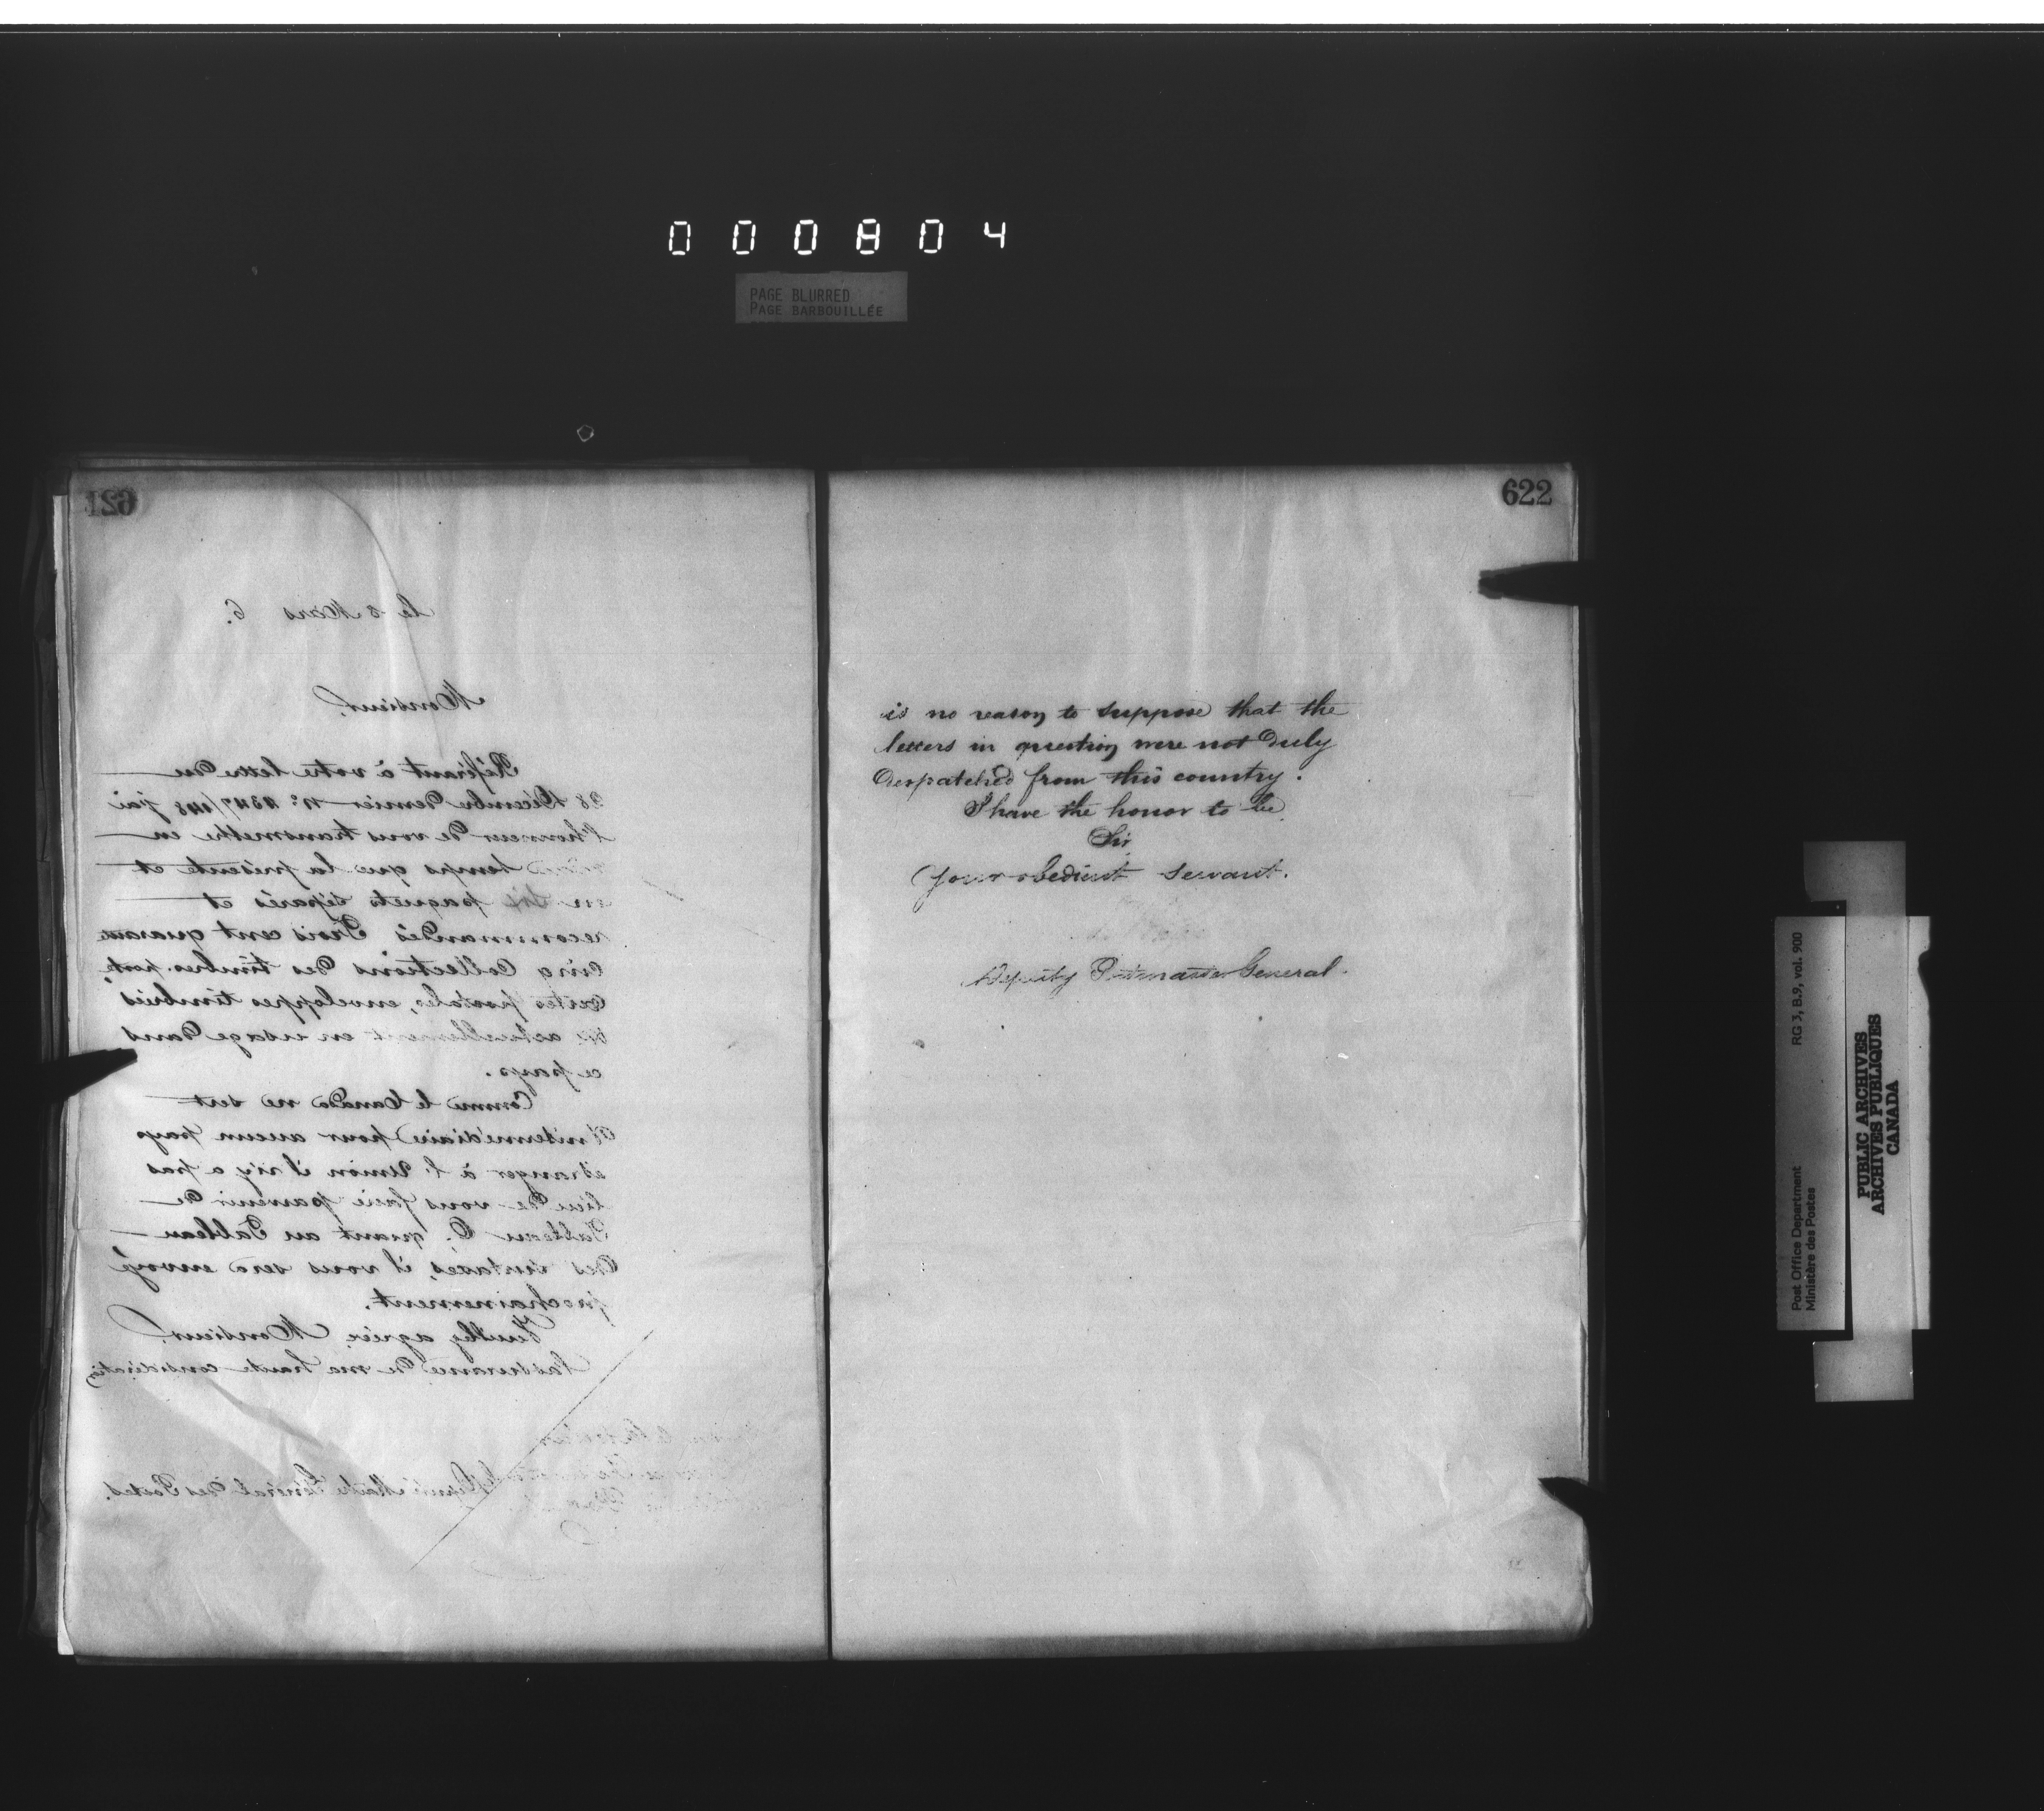 000804
PAGE BLURRED
PAGE BARBOUILLÉE
621
Le 8 Mars 6.
Monsieur,
Référant à votre lettre du
28 Décembre dernier No. 4347/148 j'ai
l'honneur de vous transmettre en
temps que la présente et
en paquets séparés et
recommandés Trois cent quarante
cinq collections des timbres-poste,
cartes postales, enveloppes timbrées
actuellement en usage dans
ce pays.
Comme le Canada ne sert
d'intermédiaire pour aucun pays
étranger à l'Union il n'y a pas
lieu de vous faire parvenir de
Tableau C, quant au Tableau
des taxes, il vous sera envoyé
prochainement.
Veuillez agréer, Monsieur,
l'assurance de ma haute considération
Député Maitre Général des Postes.
622
is no reason to suppose that the
letters in question were not duly
despatched from this country.
I have the honor to be
Sir
Your obedient Servant.
Deputy Postmaster General.
Post Office Department
Ministère des Postes
RG 3, B.9, vol. 900
PUBLIC ARCHIVES
ARCHIVES PUBLIQUES
CANADA